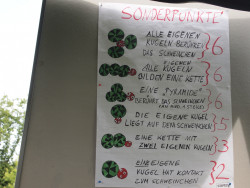 SONDERPUNKTE
ALLE EIGENEN
KUGELN BERÜHREN
DAS SCHWEINCHEN
6
EIGENEN
ALLE KUGELN
BILDEN EINE KETTE
6
EINE "PYRAMIDE"
BERÜHRT DAS SCHWEINCHEN
6
DIE EIGENE KUGEL
LIEGT AUF DEM SCHWEINCHEN
5
EINE KETTE MIT
ZWEI EIGENEN KUGELN
3
EINE EIGENE
KUGEL HAT KONTAKT
ZUM SCHWEINCHEN
2